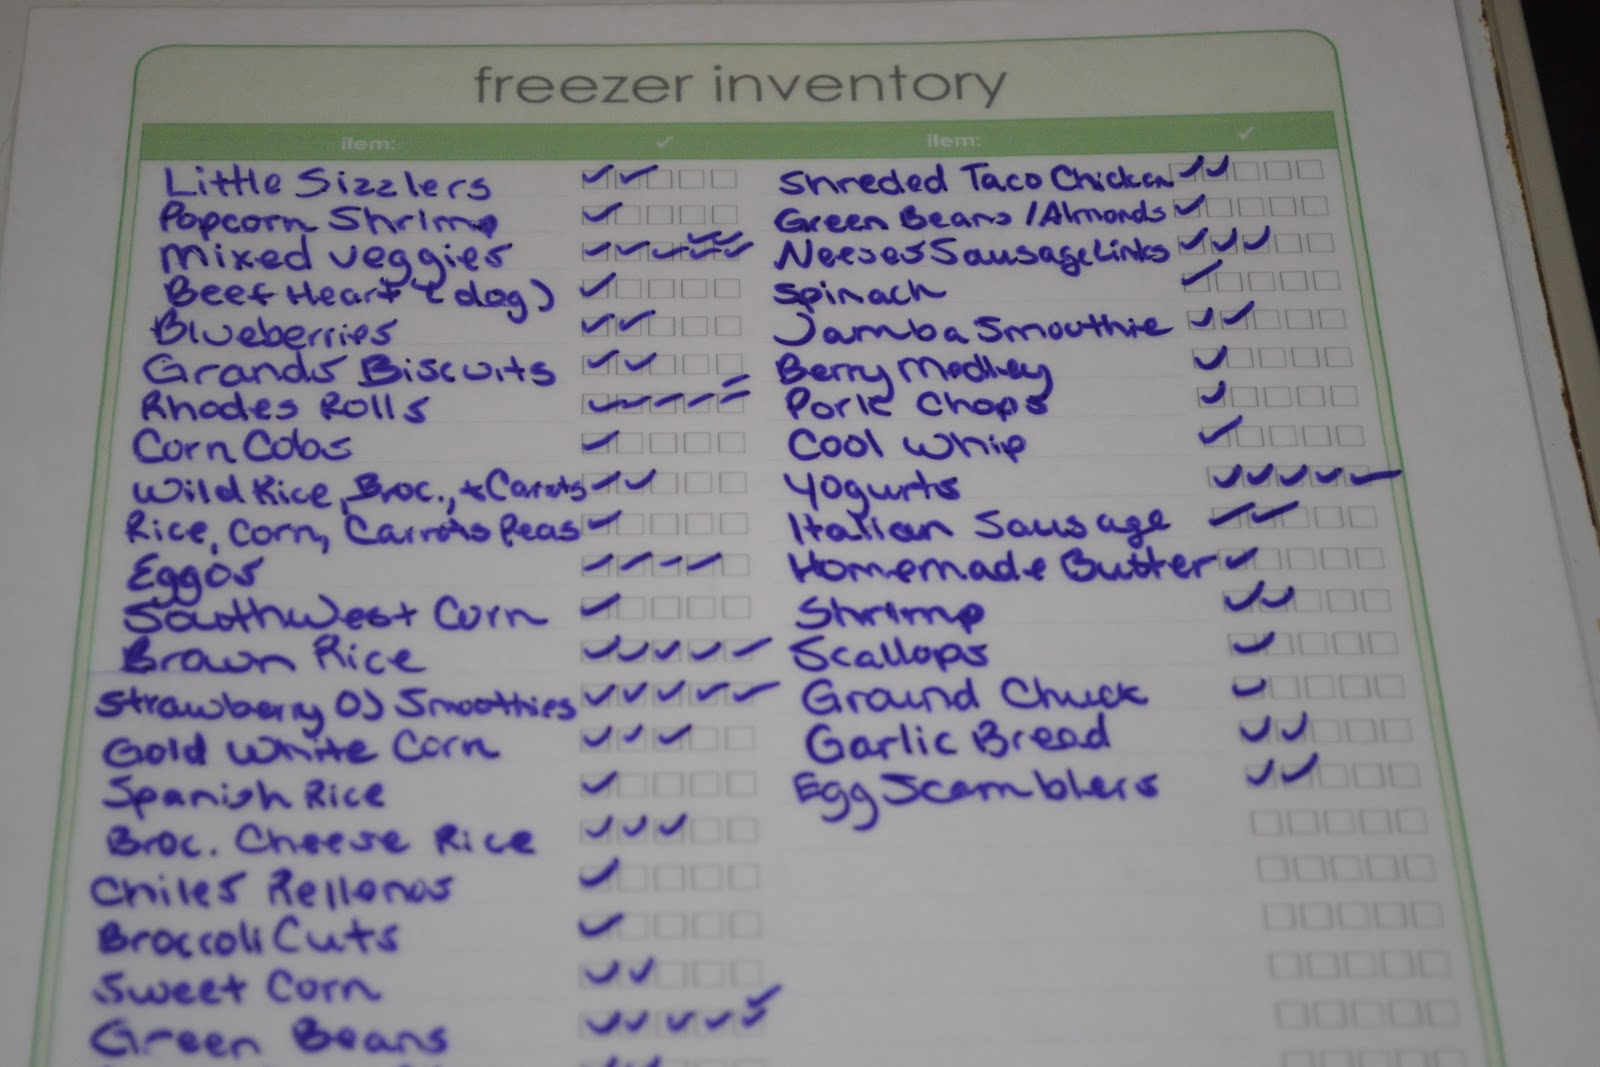 freezer inventory
item: ✓ item: ✓
Little Sizzlers
Popcorn Shrimp
Mixed Veggies
Beef Heart (dog)
Blueberries
Grands Biscuits
Rhodes Rolls
Corn Cobs
Wild Rice, Broc., + Carrots
Rice, Corn, Carrots Peas
Eggos
Southwest Corn
Brown Rice
Strawberry OJ Smoothies
Gold White Corn
Spanish Rice
Broc. Cheese Rice
Chiles Rellenos
Broccoli Cuts
Sweet Corn
Green Beans
Shreded Taco Chicken
Green Beans / Almonds
Neeses Sausage Links
Spinach
Jamba Smouthie
Berry Medley
Pork Chops
Cool Whip
Yogurts
Italian Sausage
Homemade Butter
Shrimp
Scallops
Ground Chuck
Garlic Bread
Egg Scamblers